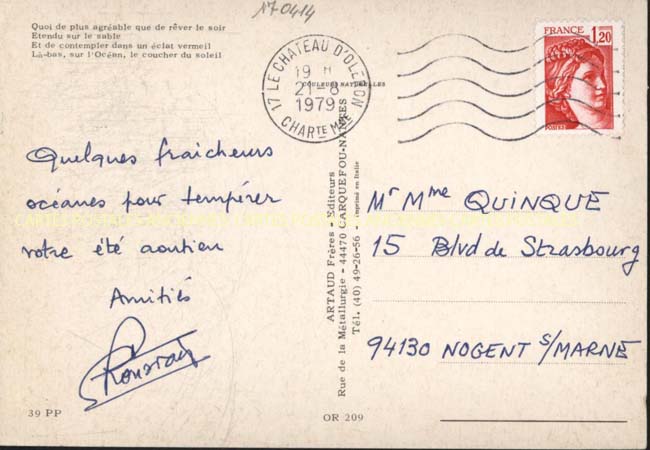 170414
Quoi de plus agréable que de rêver le soir
Etendu sur le sable
Et de contempler dans un éclat vermeil
Là-bas, sur l'Océan, le coucher du soleil
17 LE CHATEAU D'OLERON
19 H
21-8
1979
CHARTE MME
FRANCE
1,20
POSTES
COULEURS NATURELLES
Quelques fraîcheurs
océanes pour tempérer
votre été aoutien
Amitiés
ARTAUD Frères - Editeurs
Rue de la Métallurgie - 44470 CARQUEFOU-NANTES
Tél. (40) 49-26-56 - Imprimé en Italie
Mr Mme QUINQUE
15 Blvd de Strasbourg
94130 NOGENT S/MARNE
39 PP
OR 209